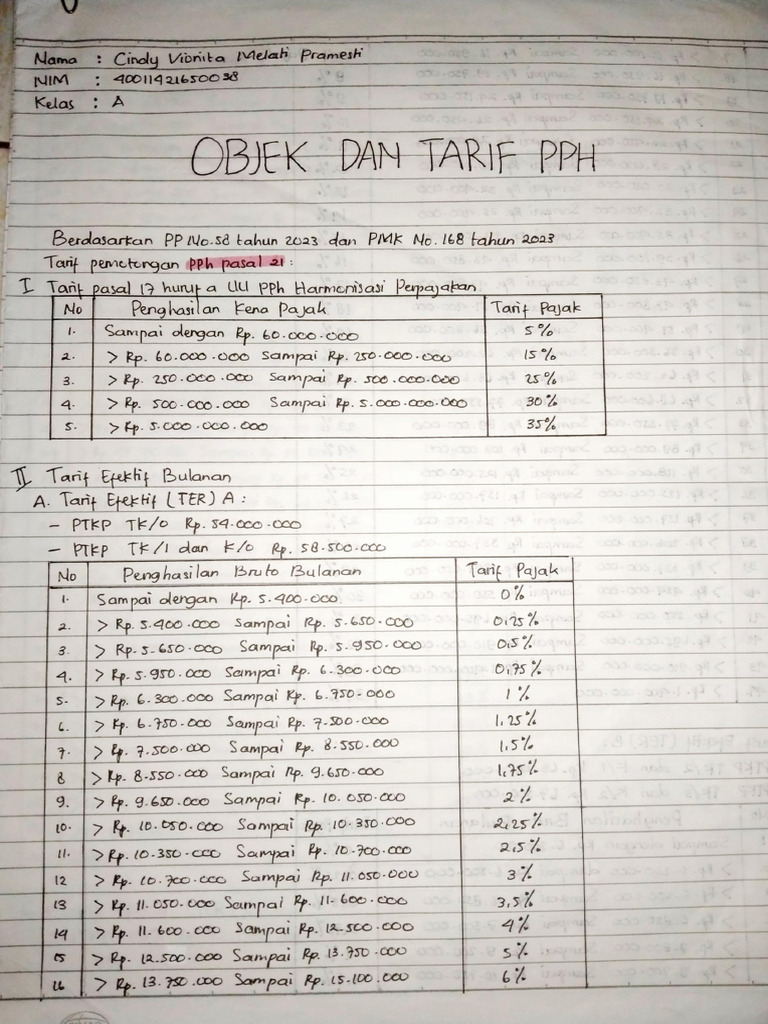 Nama : Cindy Vionita Melati Pramesti
NIM : 40011421650038
Kelas : A
OBJEK DAN TARIF PPH
Berdasarkan PP No.58 tahun 2023 dan PMK No. 168 tahun 2023
Tarif pemotongan PPh pasal 21 :
I Tarif pasal 17 huruf a UU PPh Harmonisasi Perpajakan
No Penghasilan Kena Pajak Tarif Pajak
1. Sampai dengan Rp. 60.000.000 5%
2. > Rp. 60.000.000 Sampai Rp. 250.000.000 15%
3. > Rp. 250.000.000 Sampai Rp. 500.000.000 25%
4. > Rp. 500.000.000 Sampai Rp. 5.000.000.000 30%
5. > Rp. 5.000.000.000 35%
II Tarif Efektif Bulanan
A. Tarif Efektif (TER) A :
- PTKP TK/0 Rp. 54.000.000
- PTKP TK/1 dan K/0 Rp. 58.500.000
No Penghasilan Bruto Bulanan Tarif Pajak
1. Sampai dengan Rp. 5.400.000 0%
2. > Rp. 5.400.000 Sampai Rp. 5.650.000 0,25%
3. > Rp. 5.650.000 Sampai Rp. 5.950.000 0,5%
4. > Rp. 5.950.000 Sampai Rp. 6.300.000 0,75%
5. > Rp. 6.300.000 Sampai Rp. 6.750.000 1%
6. > Rp. 6.750.000 Sampai Rp. 7.500.000 1,25%
7. > Rp. 7.500.000 Sampai Rp. 8.550.000 1,5%
8 > Rp. 8.550.000 Sampai Rp. 9.650.000 1,75%
9. > Rp. 9.650.000 Sampai Rp. 10.050.000 2%
10. > Rp. 10.050.000 Sampai Rp. 10.350.000 2,25%
11. > Rp. 10.350.000 Sampai Rp. 10.700.000 2,5%
12 > Rp. 10.700.000 Sampai Rp. 11.050.000 3%
13 > Rp. 11.050.000 Sampai Rp. 11.600.000 3,5%
14 > Rp. 11.600.000 Sampai Rp. 12.500.000 4%
15 > Rp. 12.500.000 Sampai Rp. 13.750.000 5%
16 > Rp. 13.750.000 Sampai Rp. 15.100.000 6%